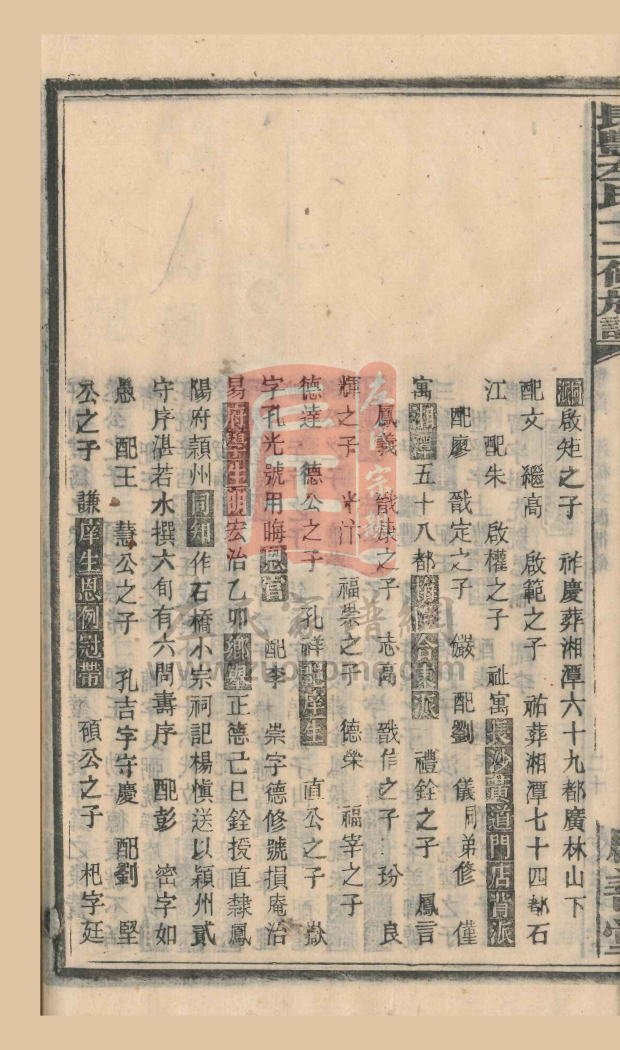 啟矩之子 祚慶葬湘潭六十九都廣林山下
配文 繼高 啟範之子 祐葬湘潭七十四都石
江 配朱 啟權之子 祉寓長沙黃道門店背派
配廖 戩定之子 儼 配劉 儀同弟修 僅
寓湘潭五十八都 台東派 禮銓之子 鳳言
鳳義 戩康之子 志高 戩信之子 玢 良
輝之子 米汴 福崇之子 德榮 福宰之子
德達 德公之子 孔祥 庠生 直公之子 嶽
字孔光號用晦恩官 配李 崇字德修號損庵治
易府學生明宏治乙卯鄉舉正德己巳銓授直隸鳳
陽府潁州同知作石橋小宗祠記楊慎送以潁州貳
守序湛若水撰六旬有六問壽序 配彭 密字如
愚 配王 慧公之子 孔吉字守慶 配劉 堅
公之子 謙庠生恩例冠帶 碩公之子 杞字廷
左氏家譜網
www.zuojiapu.com